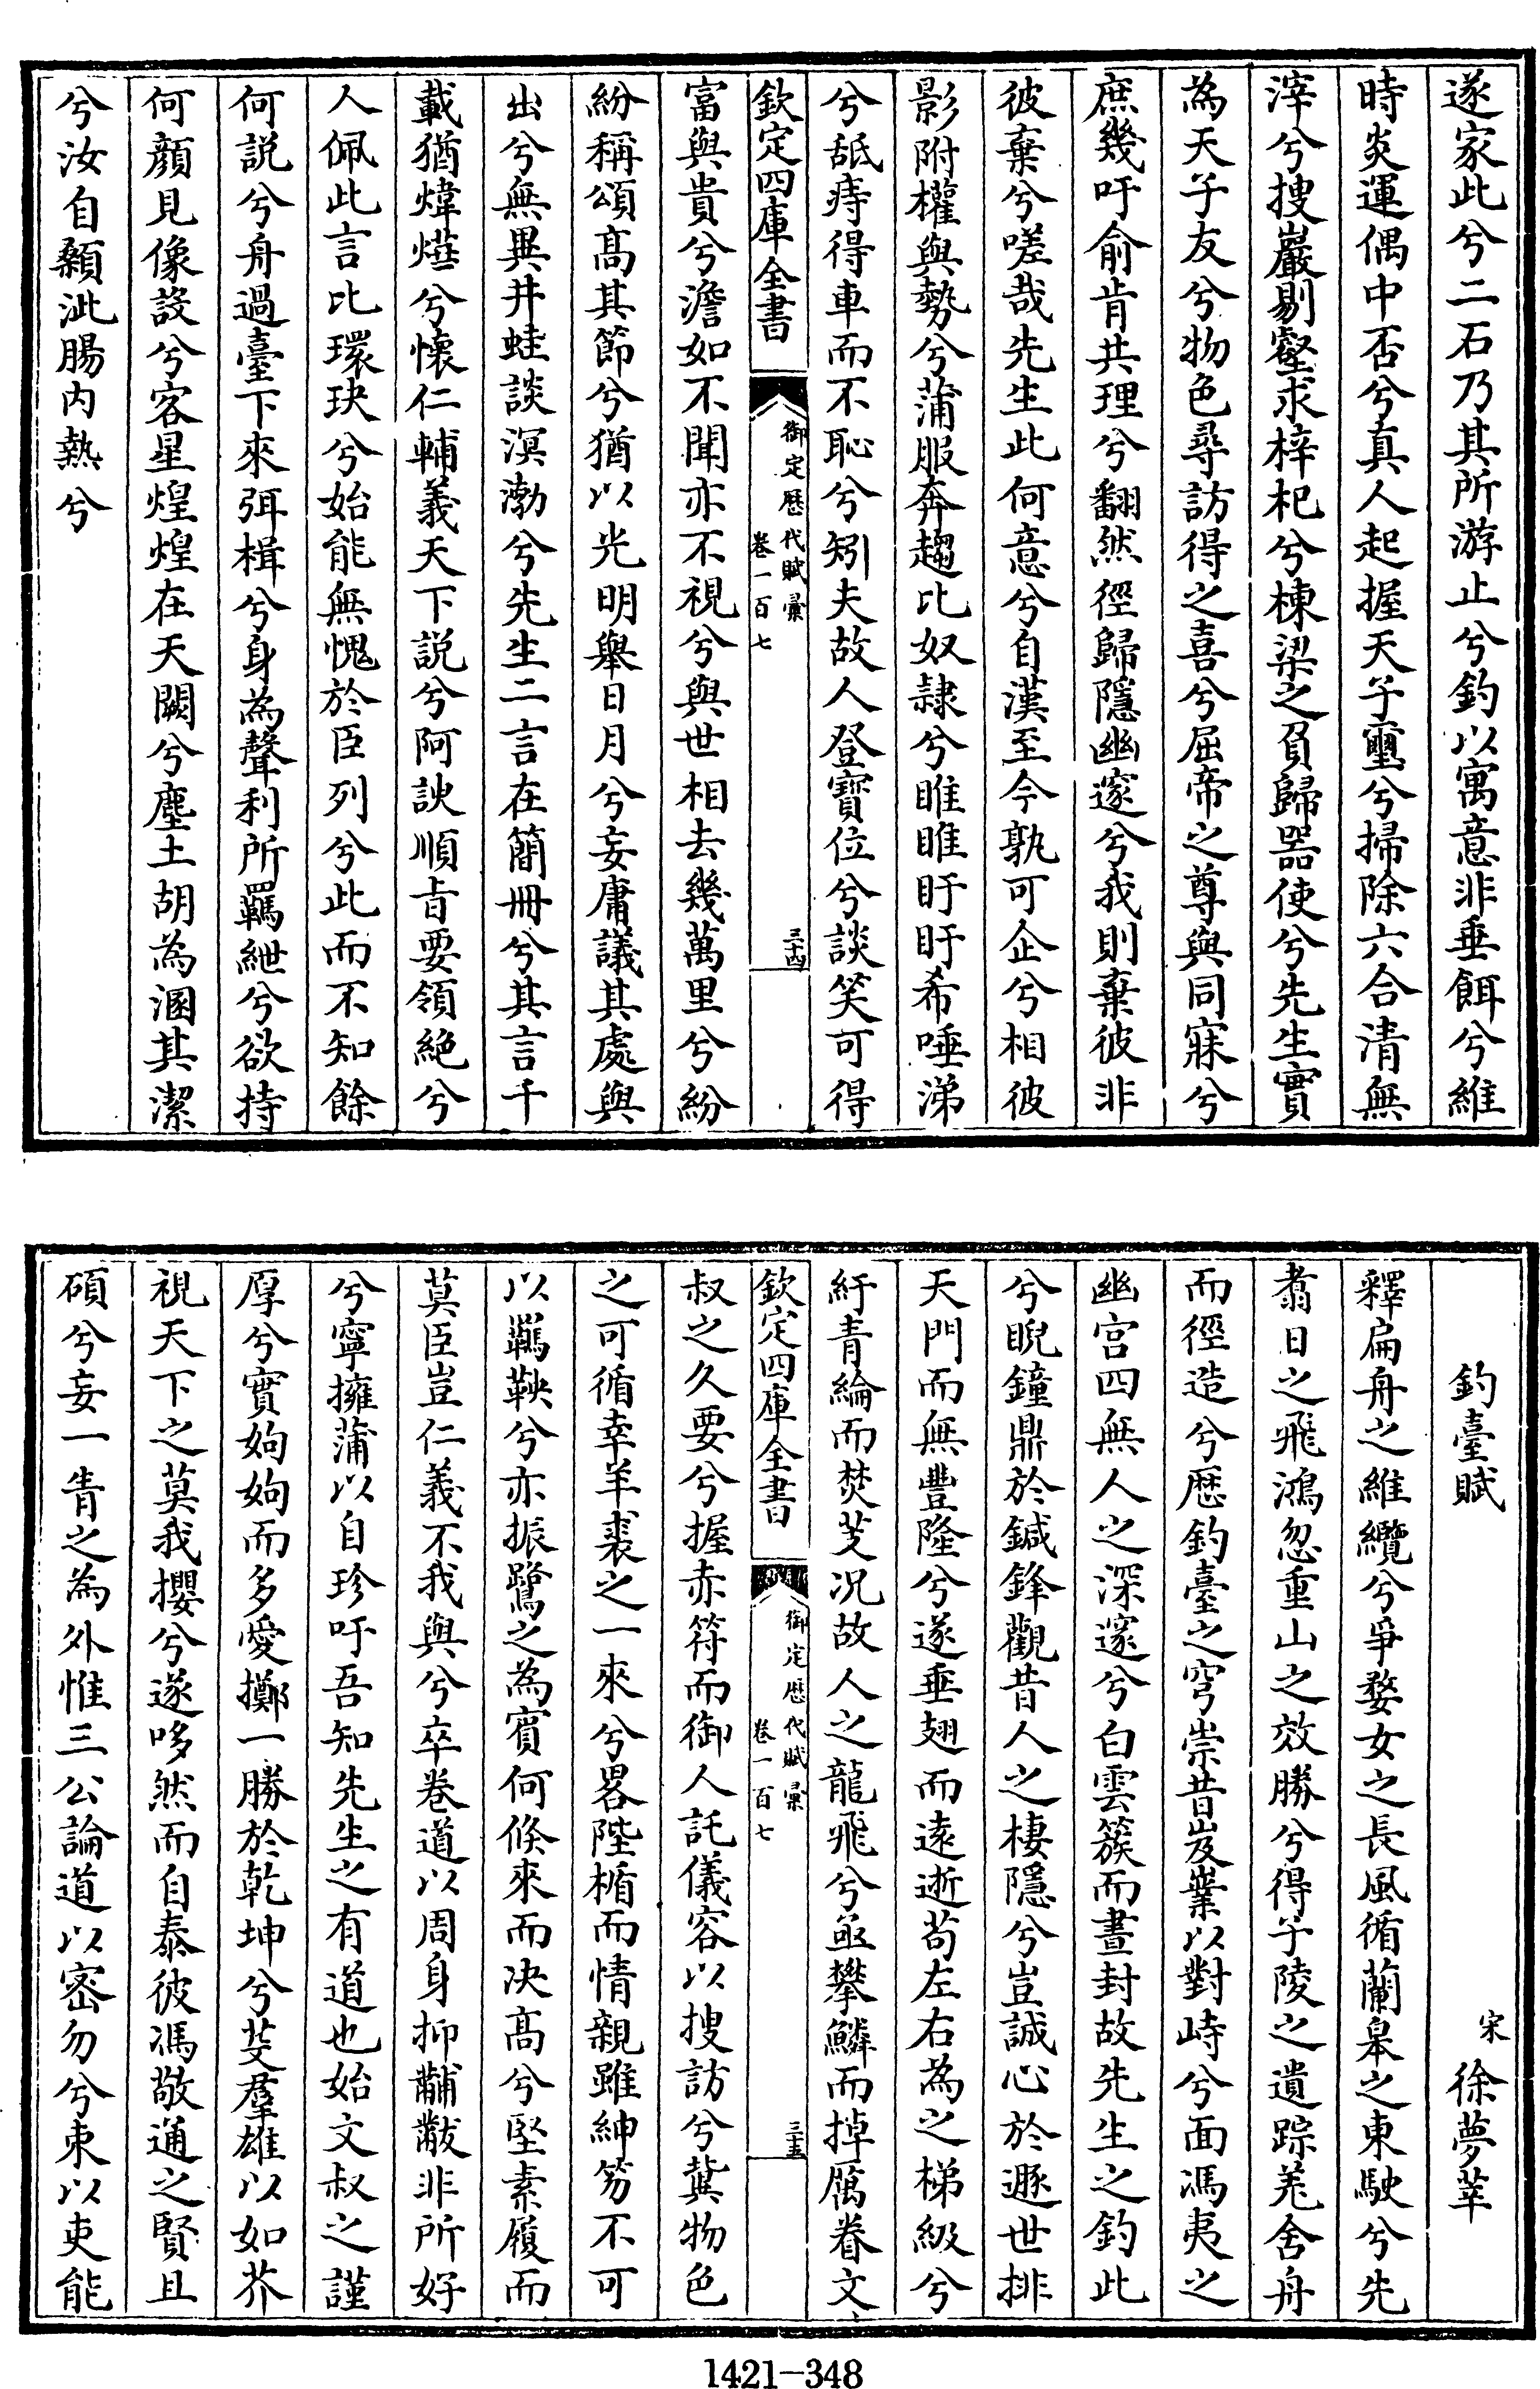 遂家此兮二石乃其所游止兮釣以寓意非垂餌兮維
時炎運偶中否兮真人起握天子璽兮掃除六合清無
滓兮搜巖剔壑求梓杞兮棟梁之負歸器使兮先生實
為天子友兮物色尋訪得之喜兮屈帝之尊與同寐兮
庶幾吁俞肯共理兮翻然徑歸隱幽邃兮我則棄彼非
彼棄兮嗟哉先生此何意兮自漢至今孰可企兮相彼
影附權與勢兮蒲服奔趨比奴隷兮睢睢盱盱希唾涕
兮舐痔得車而不恥兮矧夫故人登寶位兮談笑可得
欽定四庫全書
御定歴代賦彙
卷一百七
三十四
富與貴兮澹如不聞亦不視兮與世相去幾萬里兮紛
紛稱頌髙其節兮猶以光明舉日月兮妄庸議其處與
出兮無異井蛙談溟渤兮先生二言在簡冊兮其言千
載猶煒爗兮懐仁輔義天下説兮阿諛順㫖要領絶兮
人佩此言比環玦兮始能無愧於臣列兮此而不知餘
何説兮舟過臺下來弭楫兮身為聲利所羈紲兮欲持
何顔見像設兮客星煌煌在天闕兮塵土胡為溷其潔
兮汝自顙泚腸内熱兮
釣臺賦
宋　徐夢莘
釋扁舟之維纜兮爭婺女之長風循蘭皋之東駛兮先
翥日之飛鴻忽重山之效勝兮得子陵之遺踪羌舍舟
而徑造兮歴釣臺之穹崇昔岌嶪以對峙兮面馮夷之
幽宫四無人之深邃兮白雲簇而晝封故先生之釣此
兮睨鐘鼎於鍼鋒觀昔人之棲隱兮豈誠心於遯世排
天門而無豐隆兮遂垂翅而逺逝苟左右為之梯級兮
紆青綸而焚芰况故人之龍飛兮亟攀鱗而掉厲眷文
欽定四庫全書
御定歴代賦彙
卷一百七
三十五
叔之久要兮握赤符而御人託儀容以搜訪兮冀物色
之可循幸羊裘之一來兮畧陛楯而情親雖紳笏不可
以羈鞅兮亦振鷺之為賓何倐來而决髙兮堅素履而
莫臣豈仁義不我與兮卒巻道以周身抑黼黻非所好
兮寧擁蒲以自珍吁吾知先生之有道也始文叔之謹
厚兮實姁姁而多愛擲一勝於乾坤兮芟羣雄以如芥
視天下之莫我攖兮遂哆然而自泰彼馮敬通之賢且
碩兮妄一青之為外惟三公論道以密勿兮束以吏能
1421-348